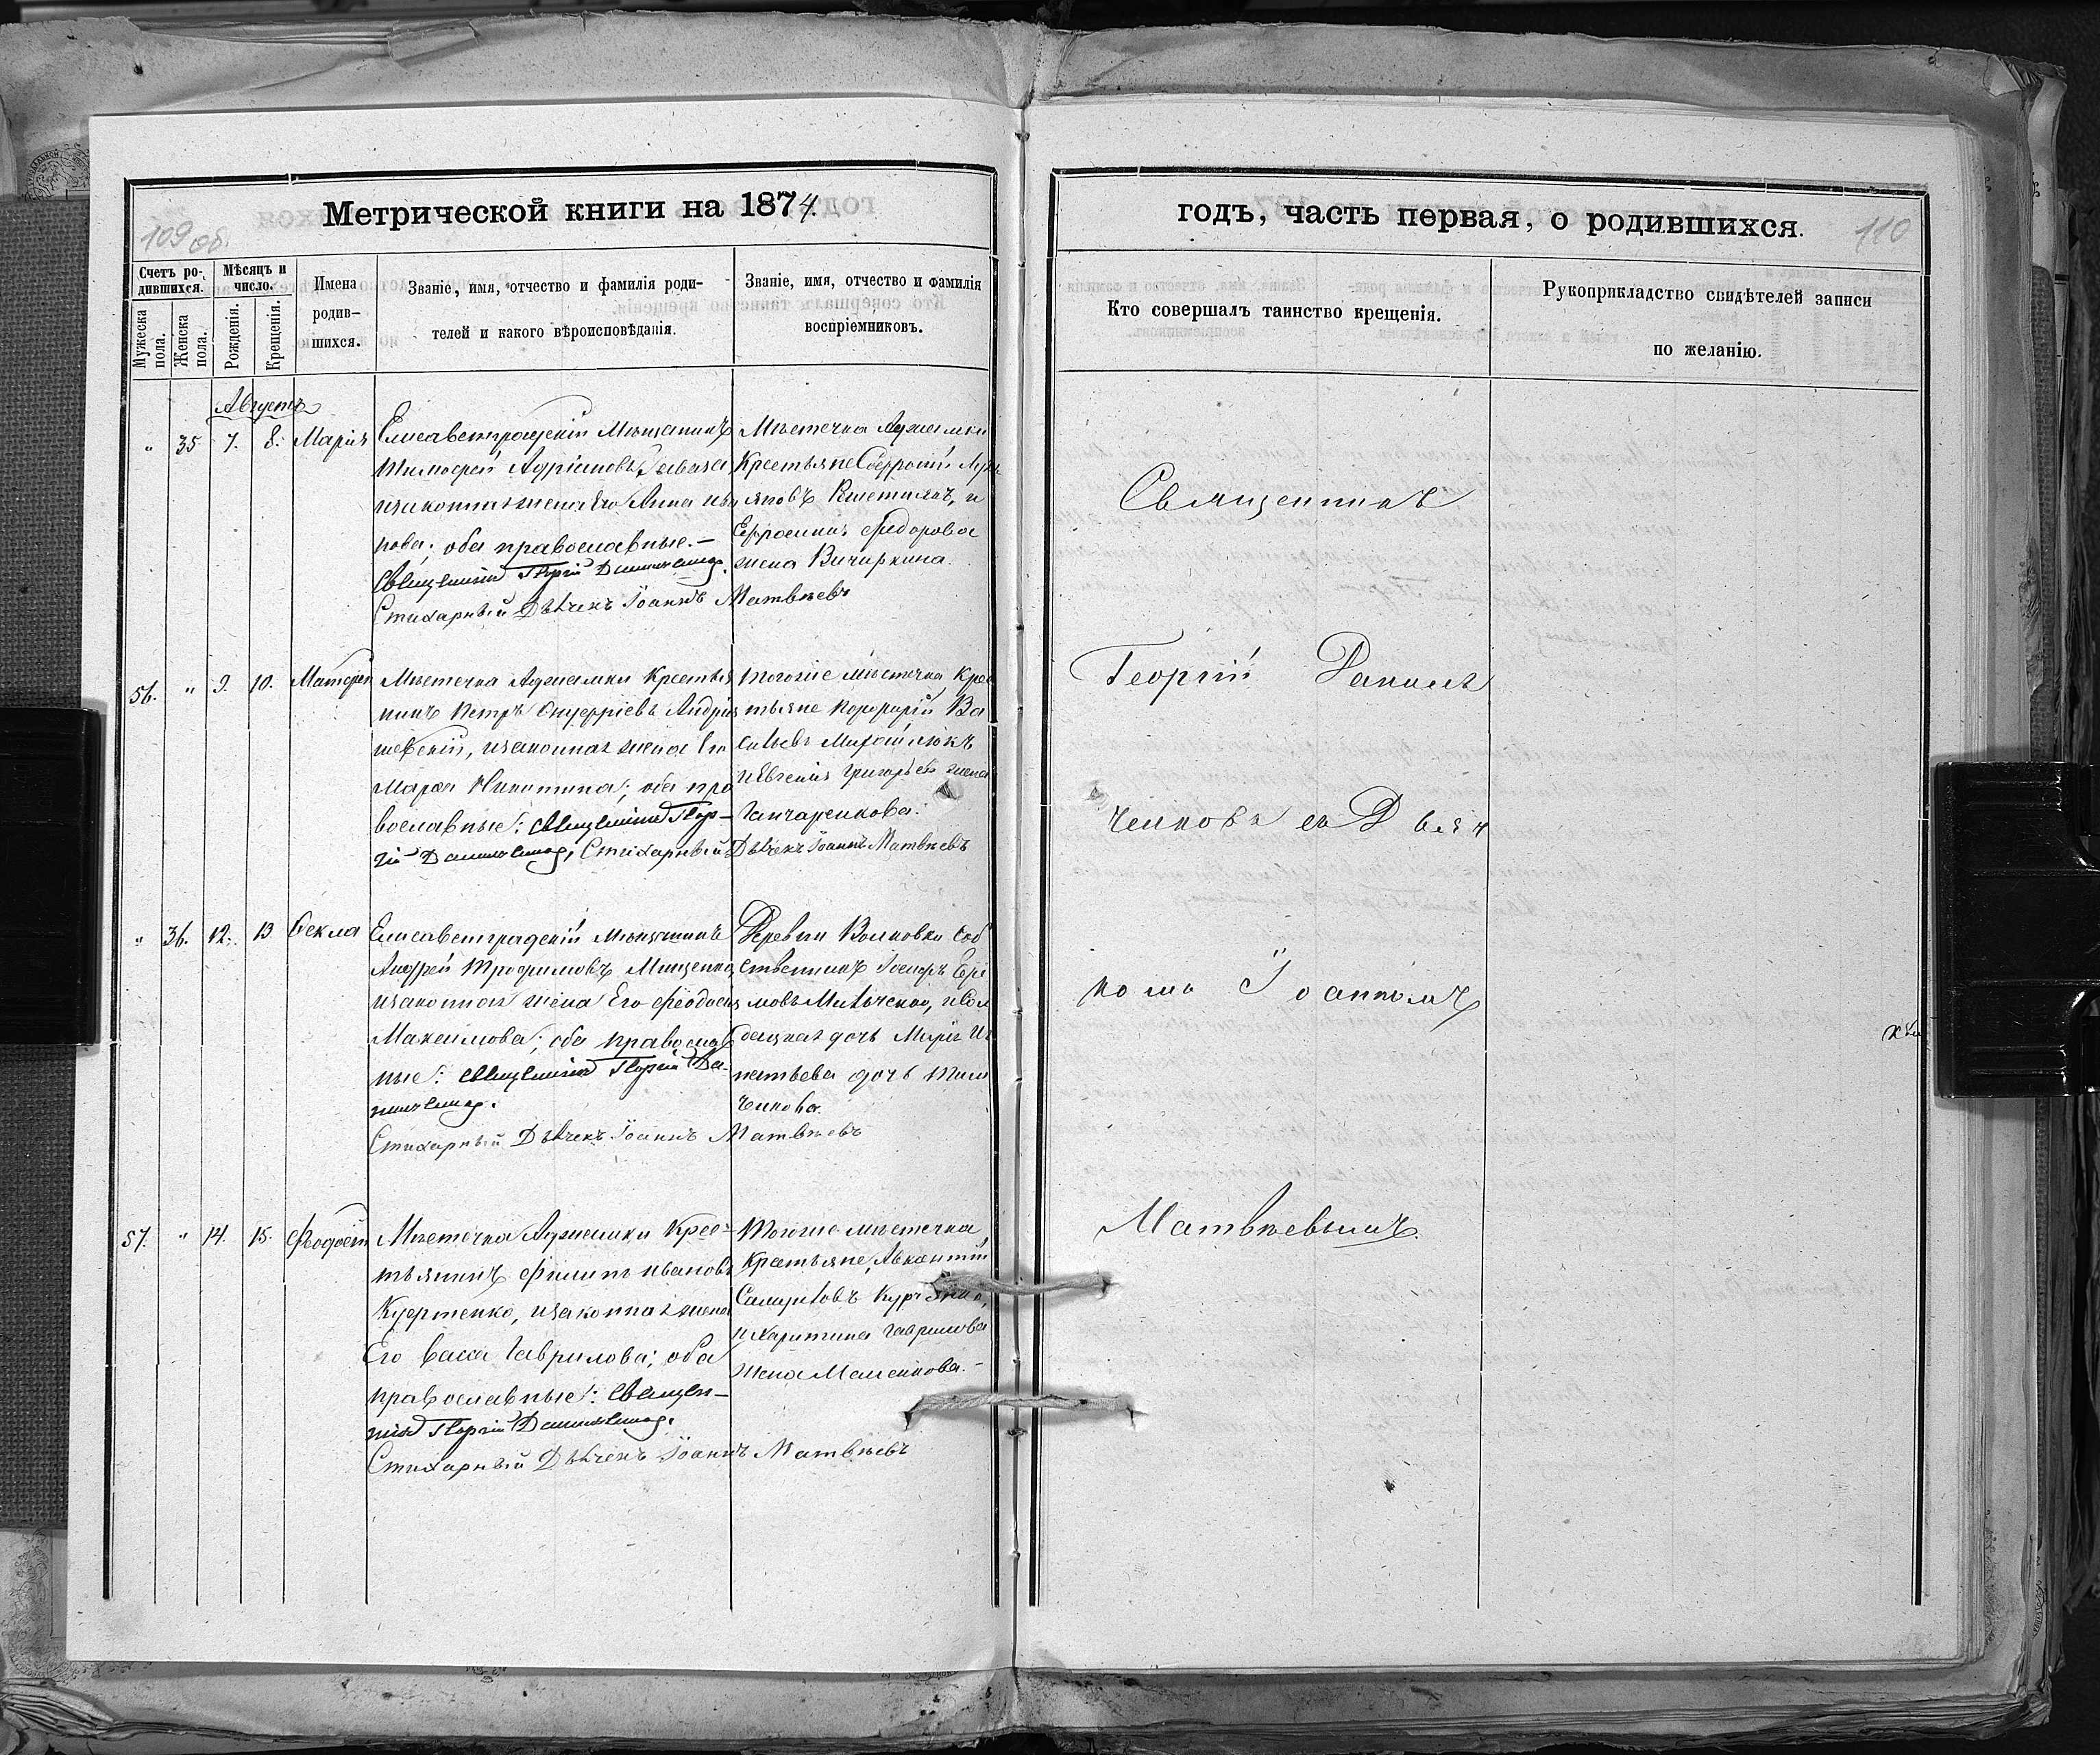 Метрической книги на 1874
109 об.
Счетъ ро-
дившихся.
Мужеска пола.
Женска пола.
Мѣсяцъ и
число.
Рожденія.
Крещенія.
Имена
родив-
шихся.
Званіе, имя, отчество и фамилія роди-
телей и какого вѣроисповѣданія.
Званіе, имя, отчество и фамилія
воспріемниковъ.
Августъ
" 35 7. 8. Марія
Елисаветградскій Мѣщанинъ
Тимофей Адріановъ
и законная жена Его Анна Ива
нова; оба православные.—
Священникъ Георгій Данильченко.
Стихарный Дьячекъ Іоаннъ Матвѣевъ
Мѣстечка Аджамки
Крестьяне Софроній Лукь
яновъ и
Ефросинія Федорова
жена Вичиркина.
56. " 9. 10. Матфей
Мѣстечка Аджамки Крестья
нинъ Петръ Онуфріевъ Андрія
шевскій, и законная жена Его
Марѳа Никитина; оба пра
вославные: Священникъ Геор-
гій Данильченко, Стихарный Дьячекъ Іоаннъ Матвѣевъ
Тогоже мѣстечка Крес
тьяне Порфирій Ва
сильевъ
и Евгенія Григорьева жена
Ганчаренкова.
" 36. 12. 13 Ѳекла
Елисаветградскій Мѣщанинъ
Андрей Трофимовъ Мищенко,
и законная жена Его Феодосія
Максимова; оба православ
ные: Священникъ Георгій Да-
нильченко.
Стихарный Дьячекъ Іоаннъ Матвѣевъ
Деревни Волковки Соб
ственникъ Іосифъ Ефи
мовъ и Сол
дацкая дочь Марія Иг
натьева дочь Тими
ченкова.
57. " 14. 15. Феодосій
Мѣстечка Аджамки Крес-
тьянинъ Филипъ Ивановъ
Куфтенко, и законная жена
Его Васса Гаврилова; оба
православные: Священ-
никъ Георгій Данильченко.
Стихарный Дьячекъ Іоаннъ Матвѣевъ
Тогоже мѣстечка
Крестьяне,
Самуиловъ
и Харитина Гаврилова
жена
годъ, часть первая, о родившихся.
110
Кто совершалъ таинство крещенія.
Рукоприкладство свидѣтелей записи
по желанію.
Священникъ
Георгій Даниль
ченковъ съ Дьяч
комъ Іоанномъ
Матвѣевымъ.